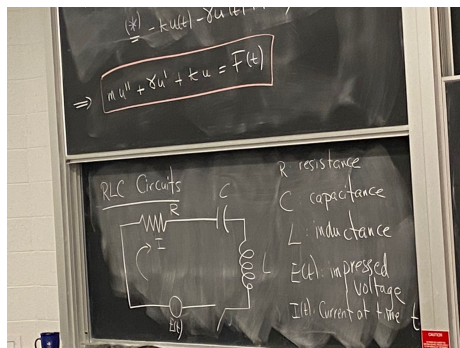 (*) - ku(t) - γu'(t)
⇒ mu'' + γu' + ku = F(t)
RLC Circuits
R resistance
C capacitance
L: inductance
E(t): impressed
voltage
I(t): Current at time t
R
C
I
L
E(t)
CAUTION